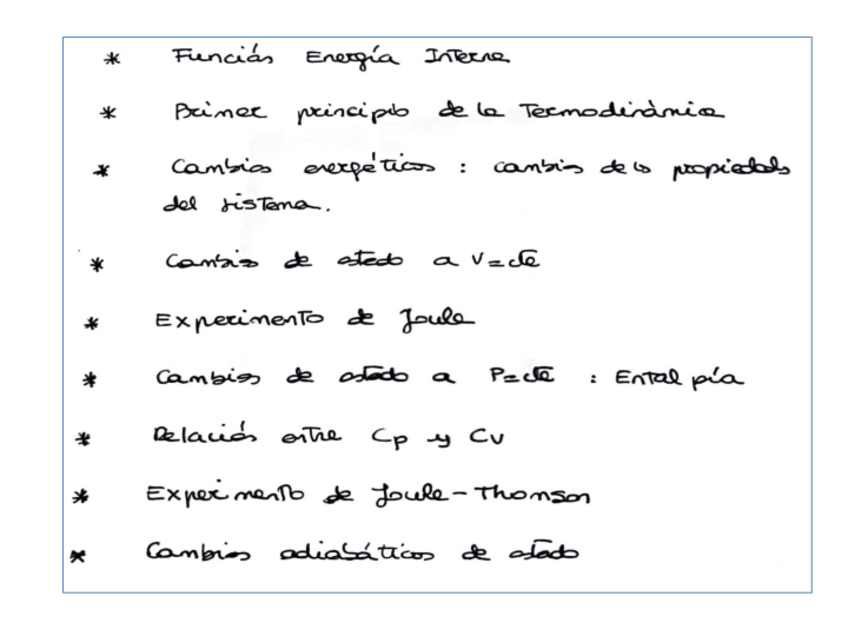 * Función Energía Interna
* Primer principio de la Termodinámica
* Cambios energéticos : cambios de las propiedades
del sistema.
* Cambio de estado a V=cte
* Experimento de Joule
* Cambios de estado a P=cte : Entalpía
* Relación entre Cp y Cv
* Experimento de Joule-Thomson
* Cambios adiabáticos de estado